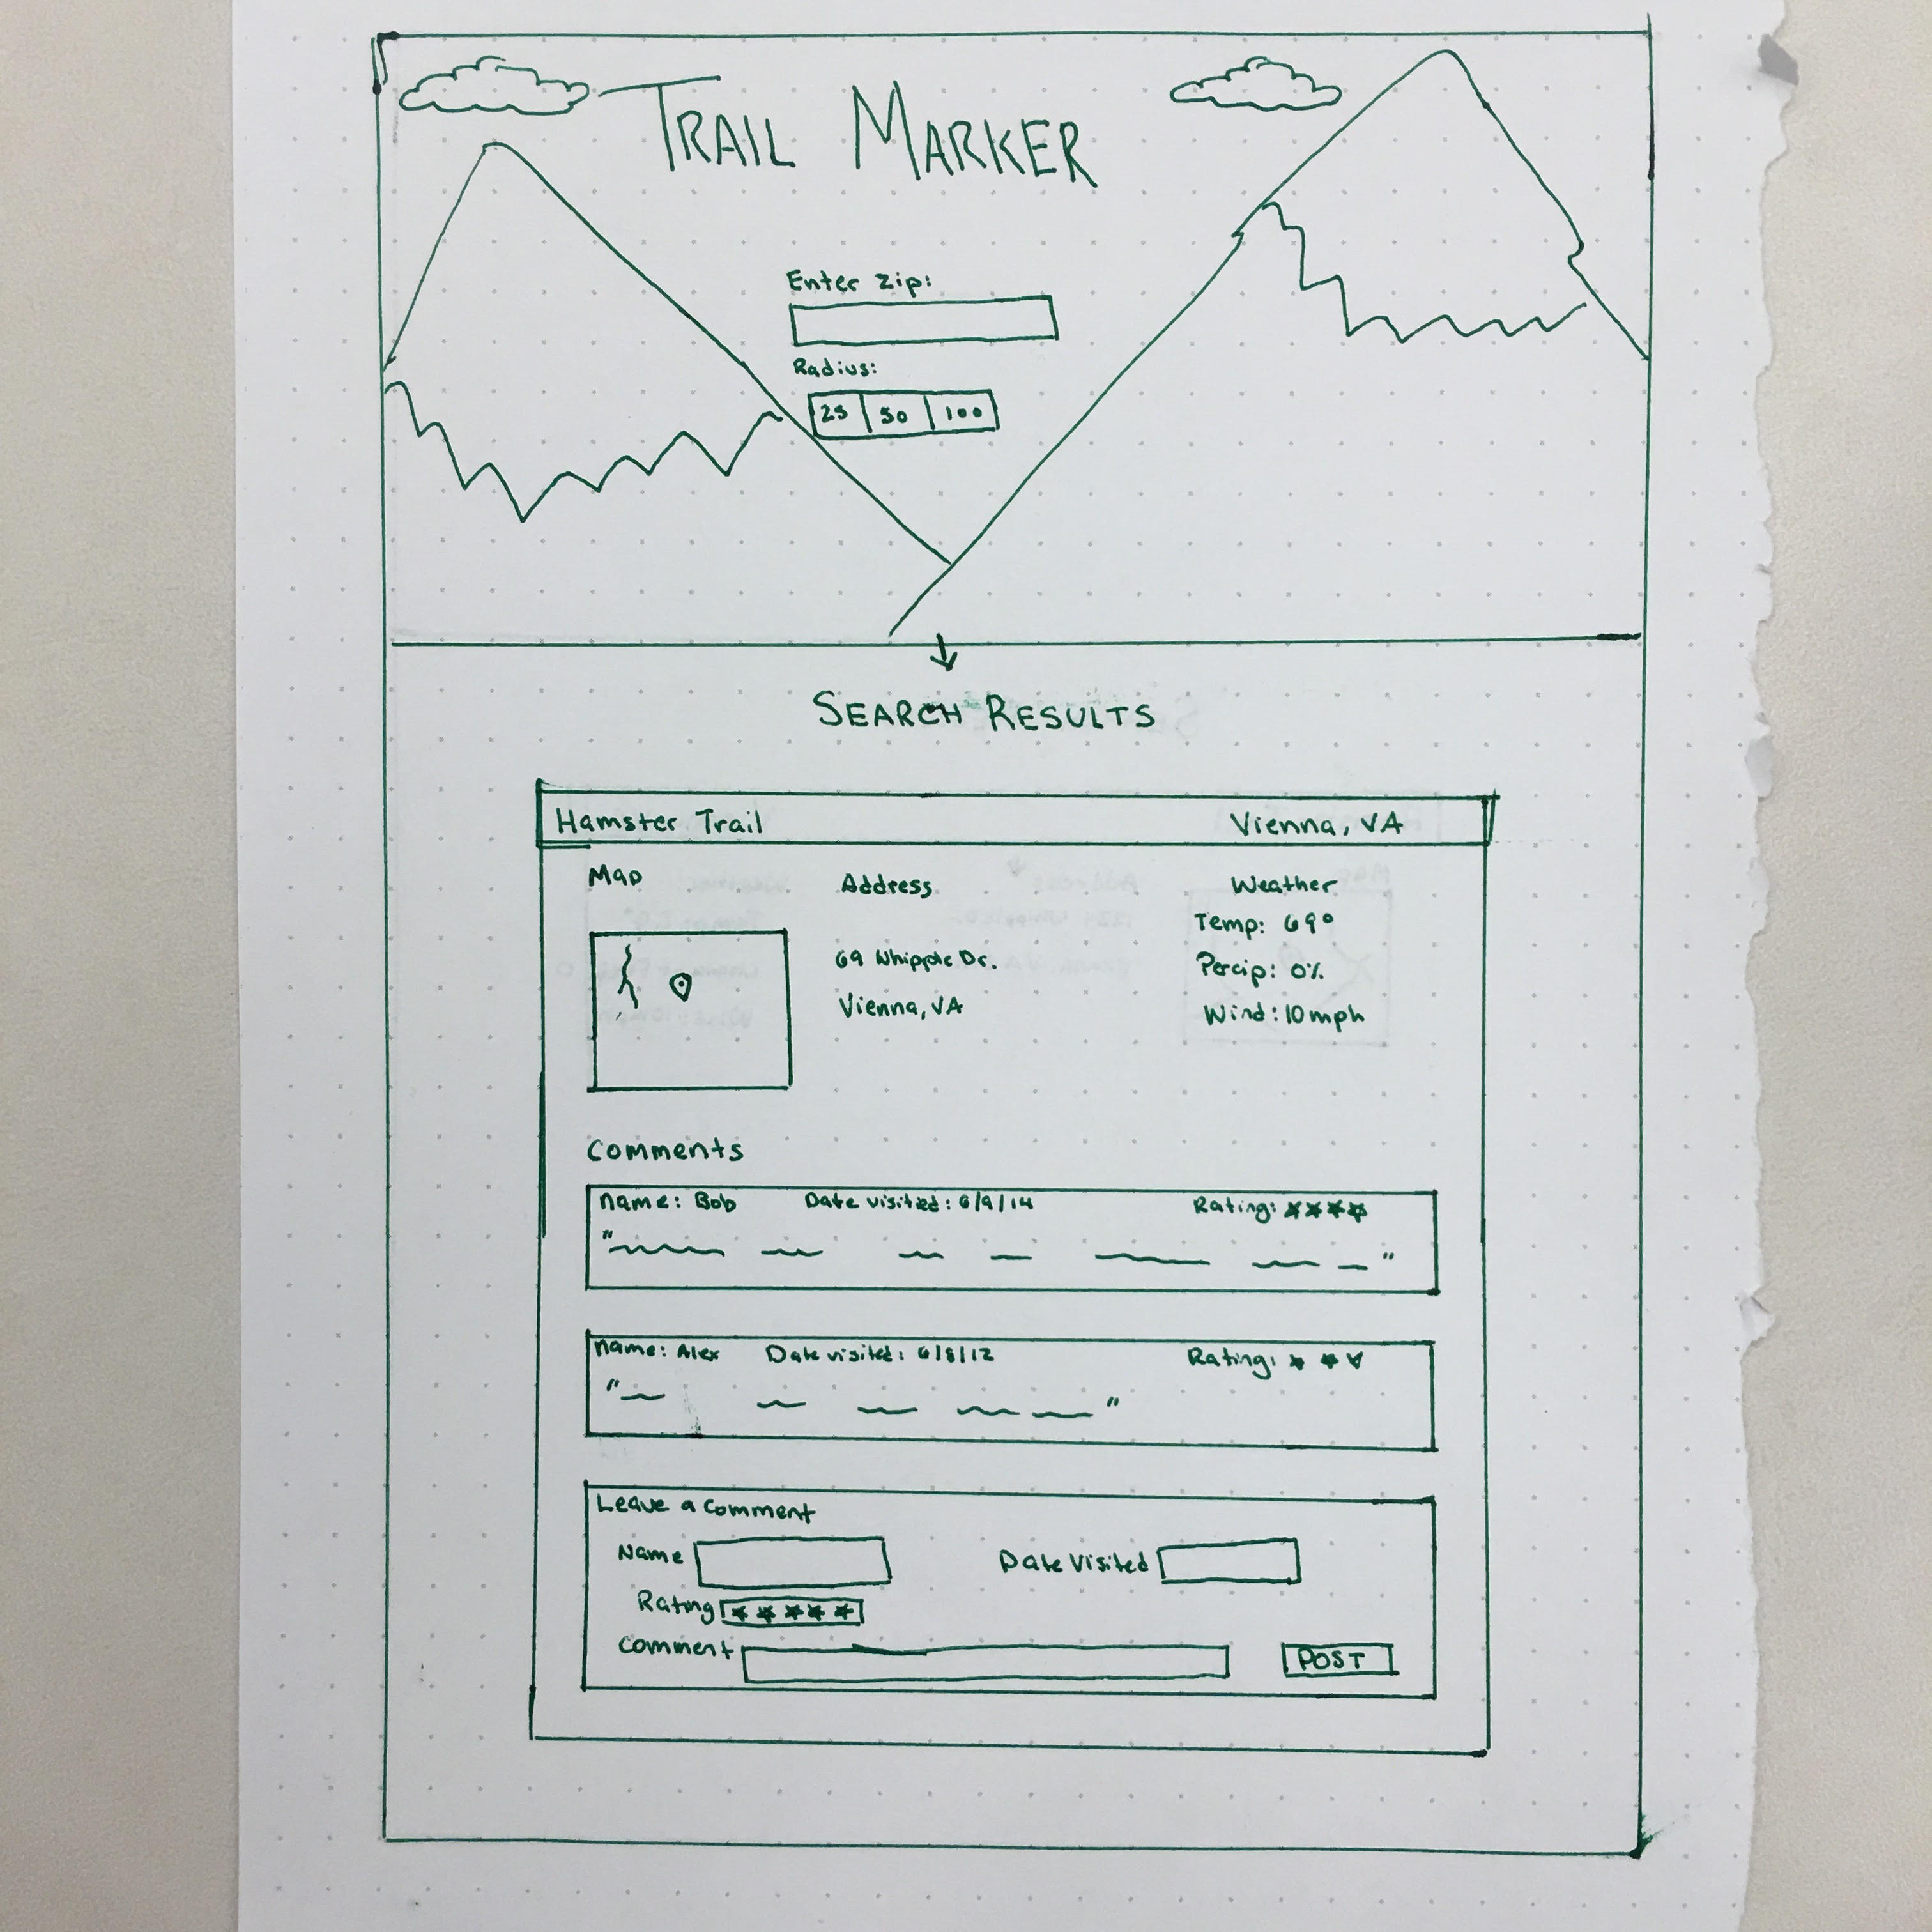 TRAIL MARKER
Enter Zip:
Radius:
25 50 100
SEARCH RESULTS
Hamster Trail Vienna, VA
Map Address Weather
Temp: 69°
69 Whipple Dr.
Percip: 0%
Vienna, VA
Wind: 10mph
Comments
name: Bob Date visited: 6/9/14 Rating:
name: Alex Date visited: 6/8/12 Rating:
Leave a comment
Name Date Visited
Rating
Comment POST